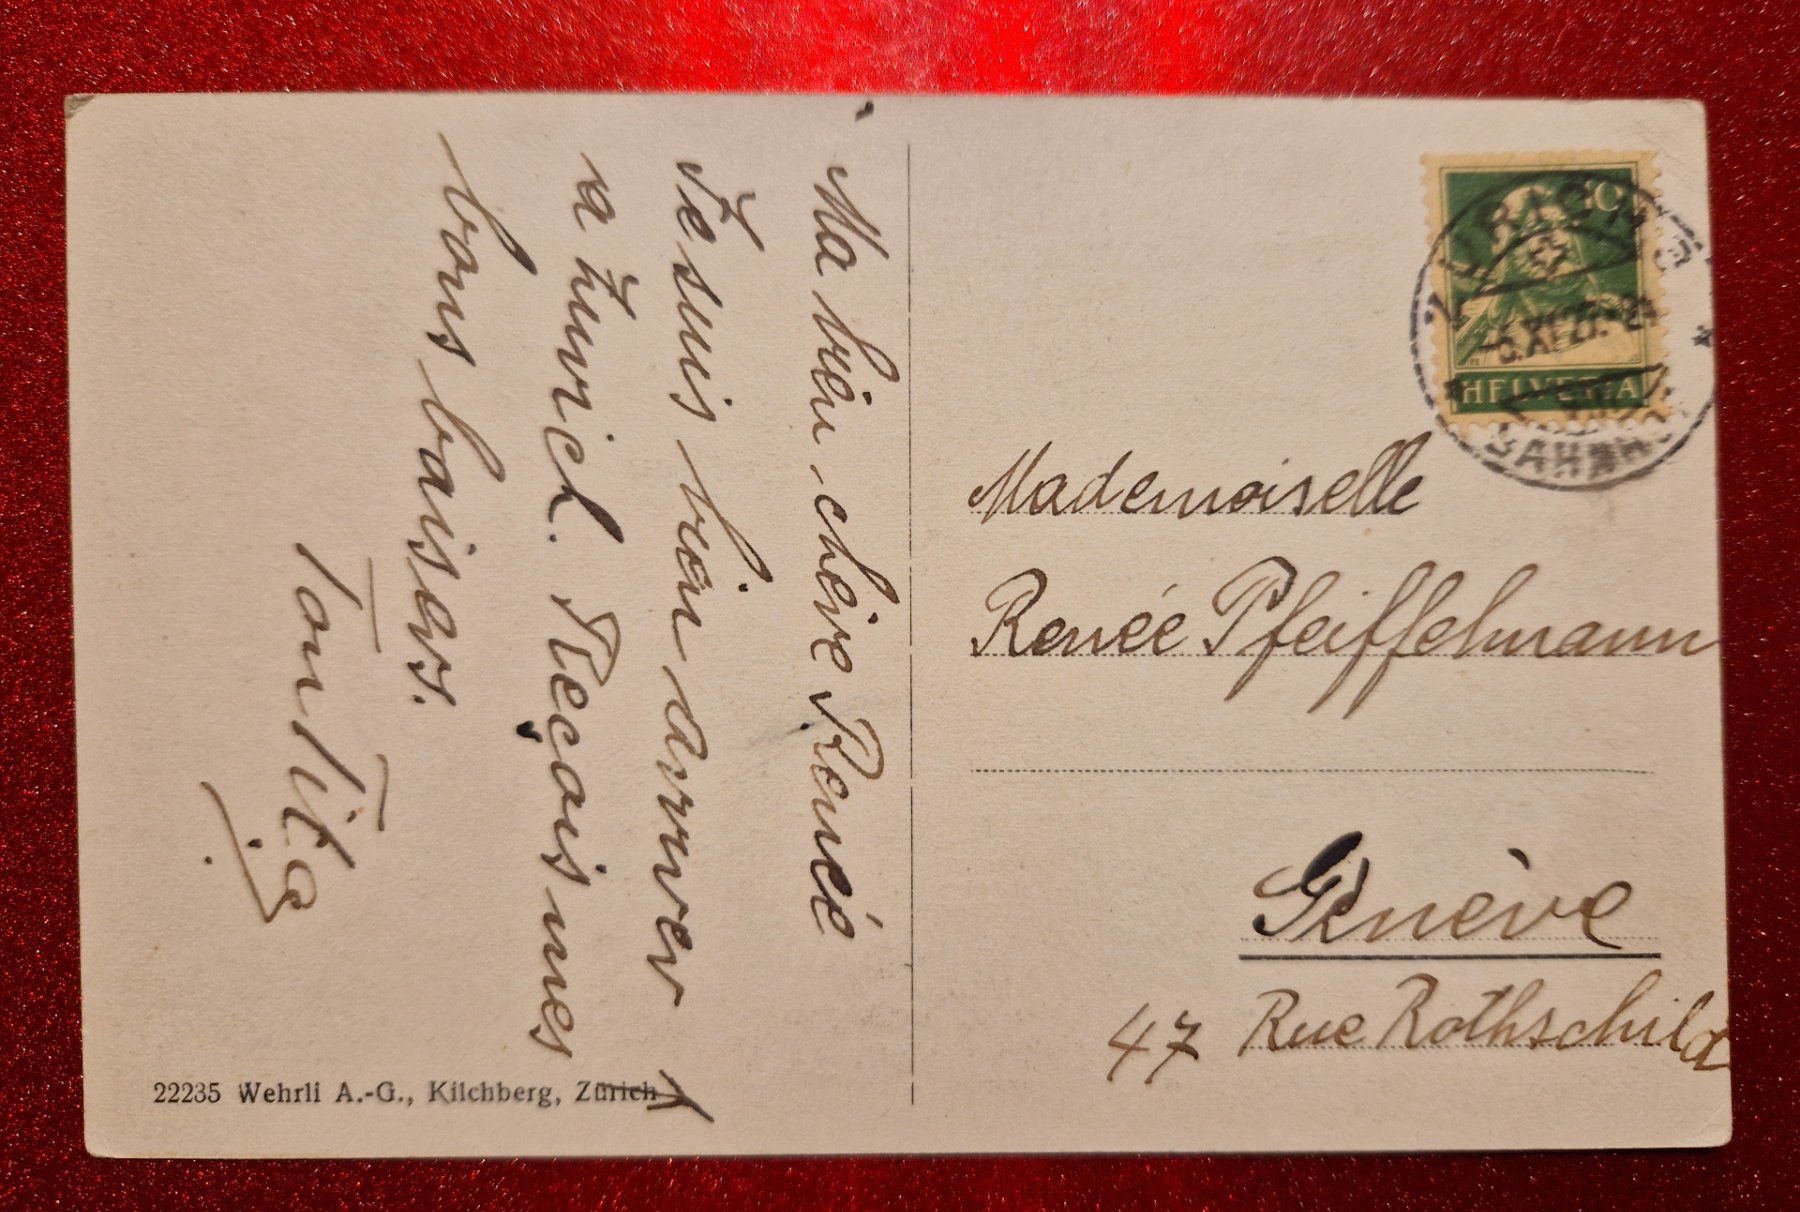 Ma bien chère Renée
Je suis bien arriver
a Zurich. Recois mes
bons baisers.
Ton Tita
22235 Wehrli A.-G., Kilchberg, Zürich
10
ZÜRICH
XI.27.
HELVETIA
BAHNH.
Mademoiselle
Renée Pfeiffelmann
Genève
47 Rue Rothschild